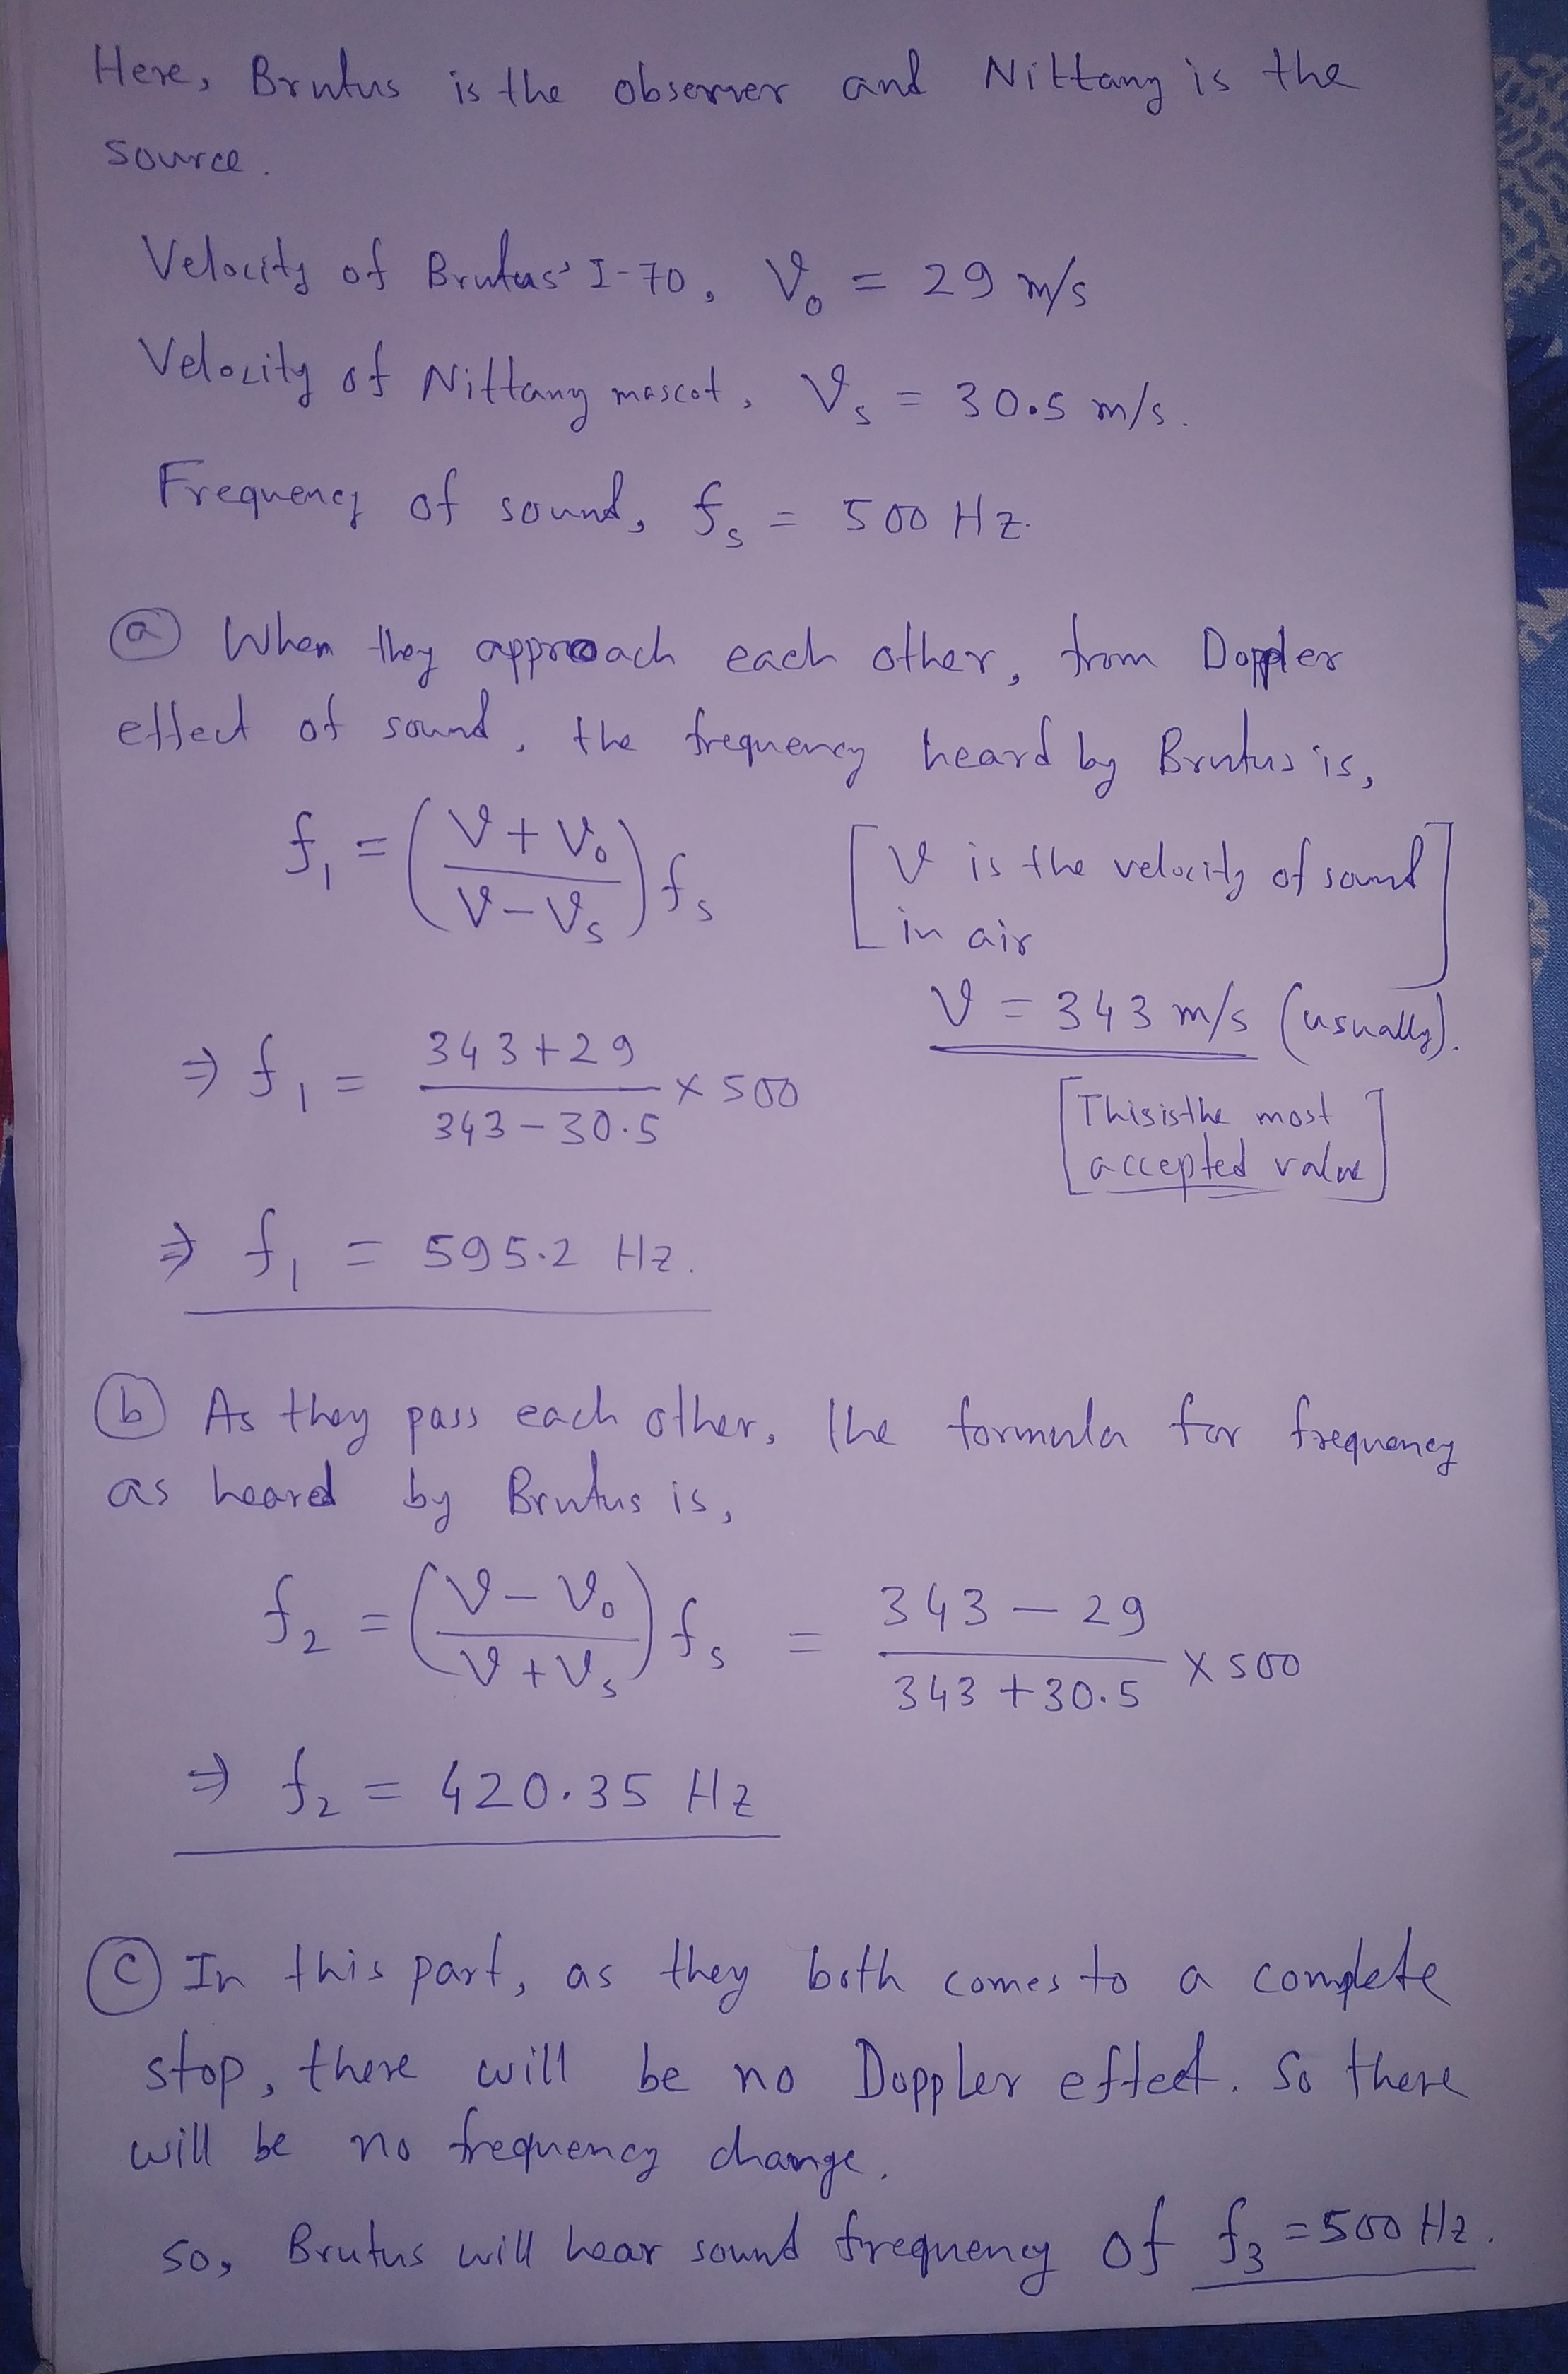 Here, Brutus is the observer and Nittany is the
source.
Velocity of Brutus' I-70, V₀ = 29 m/s
Velocity of Nittany mascot, Vₛ = 30.5 m/s.
Frequency of sound, fₛ = 500 Hz.
(a) When they approach each other, from Doppler
effect of sound, the frequency heard by Brutus is,
f₁ = ((V + V₀)/(V - Vₛ)) fₛ [V is the velocity of sound
in air]
V = 343 m/s (usually).
⇒ f₁ = (343+29)/(343-30.5) × 500
[This is the most
accepted value]
⇒ f₁ = 595.2 Hz.
(b) As they pass each other, the formula for frequency
as heared by Brutus is,
f₂ = ((V - V₀)/(V + Vₛ)) fₛ = (343 - 29)/(343 + 30.5) × 500
⇒ f₂ = 420.35 Hz
(c) In this part, as they both comes to a complete
stop, there will be no Doppler effect. So there
will be no frequency change.
So, Brutus will hear sound frequency of f₃ = 500 Hz.